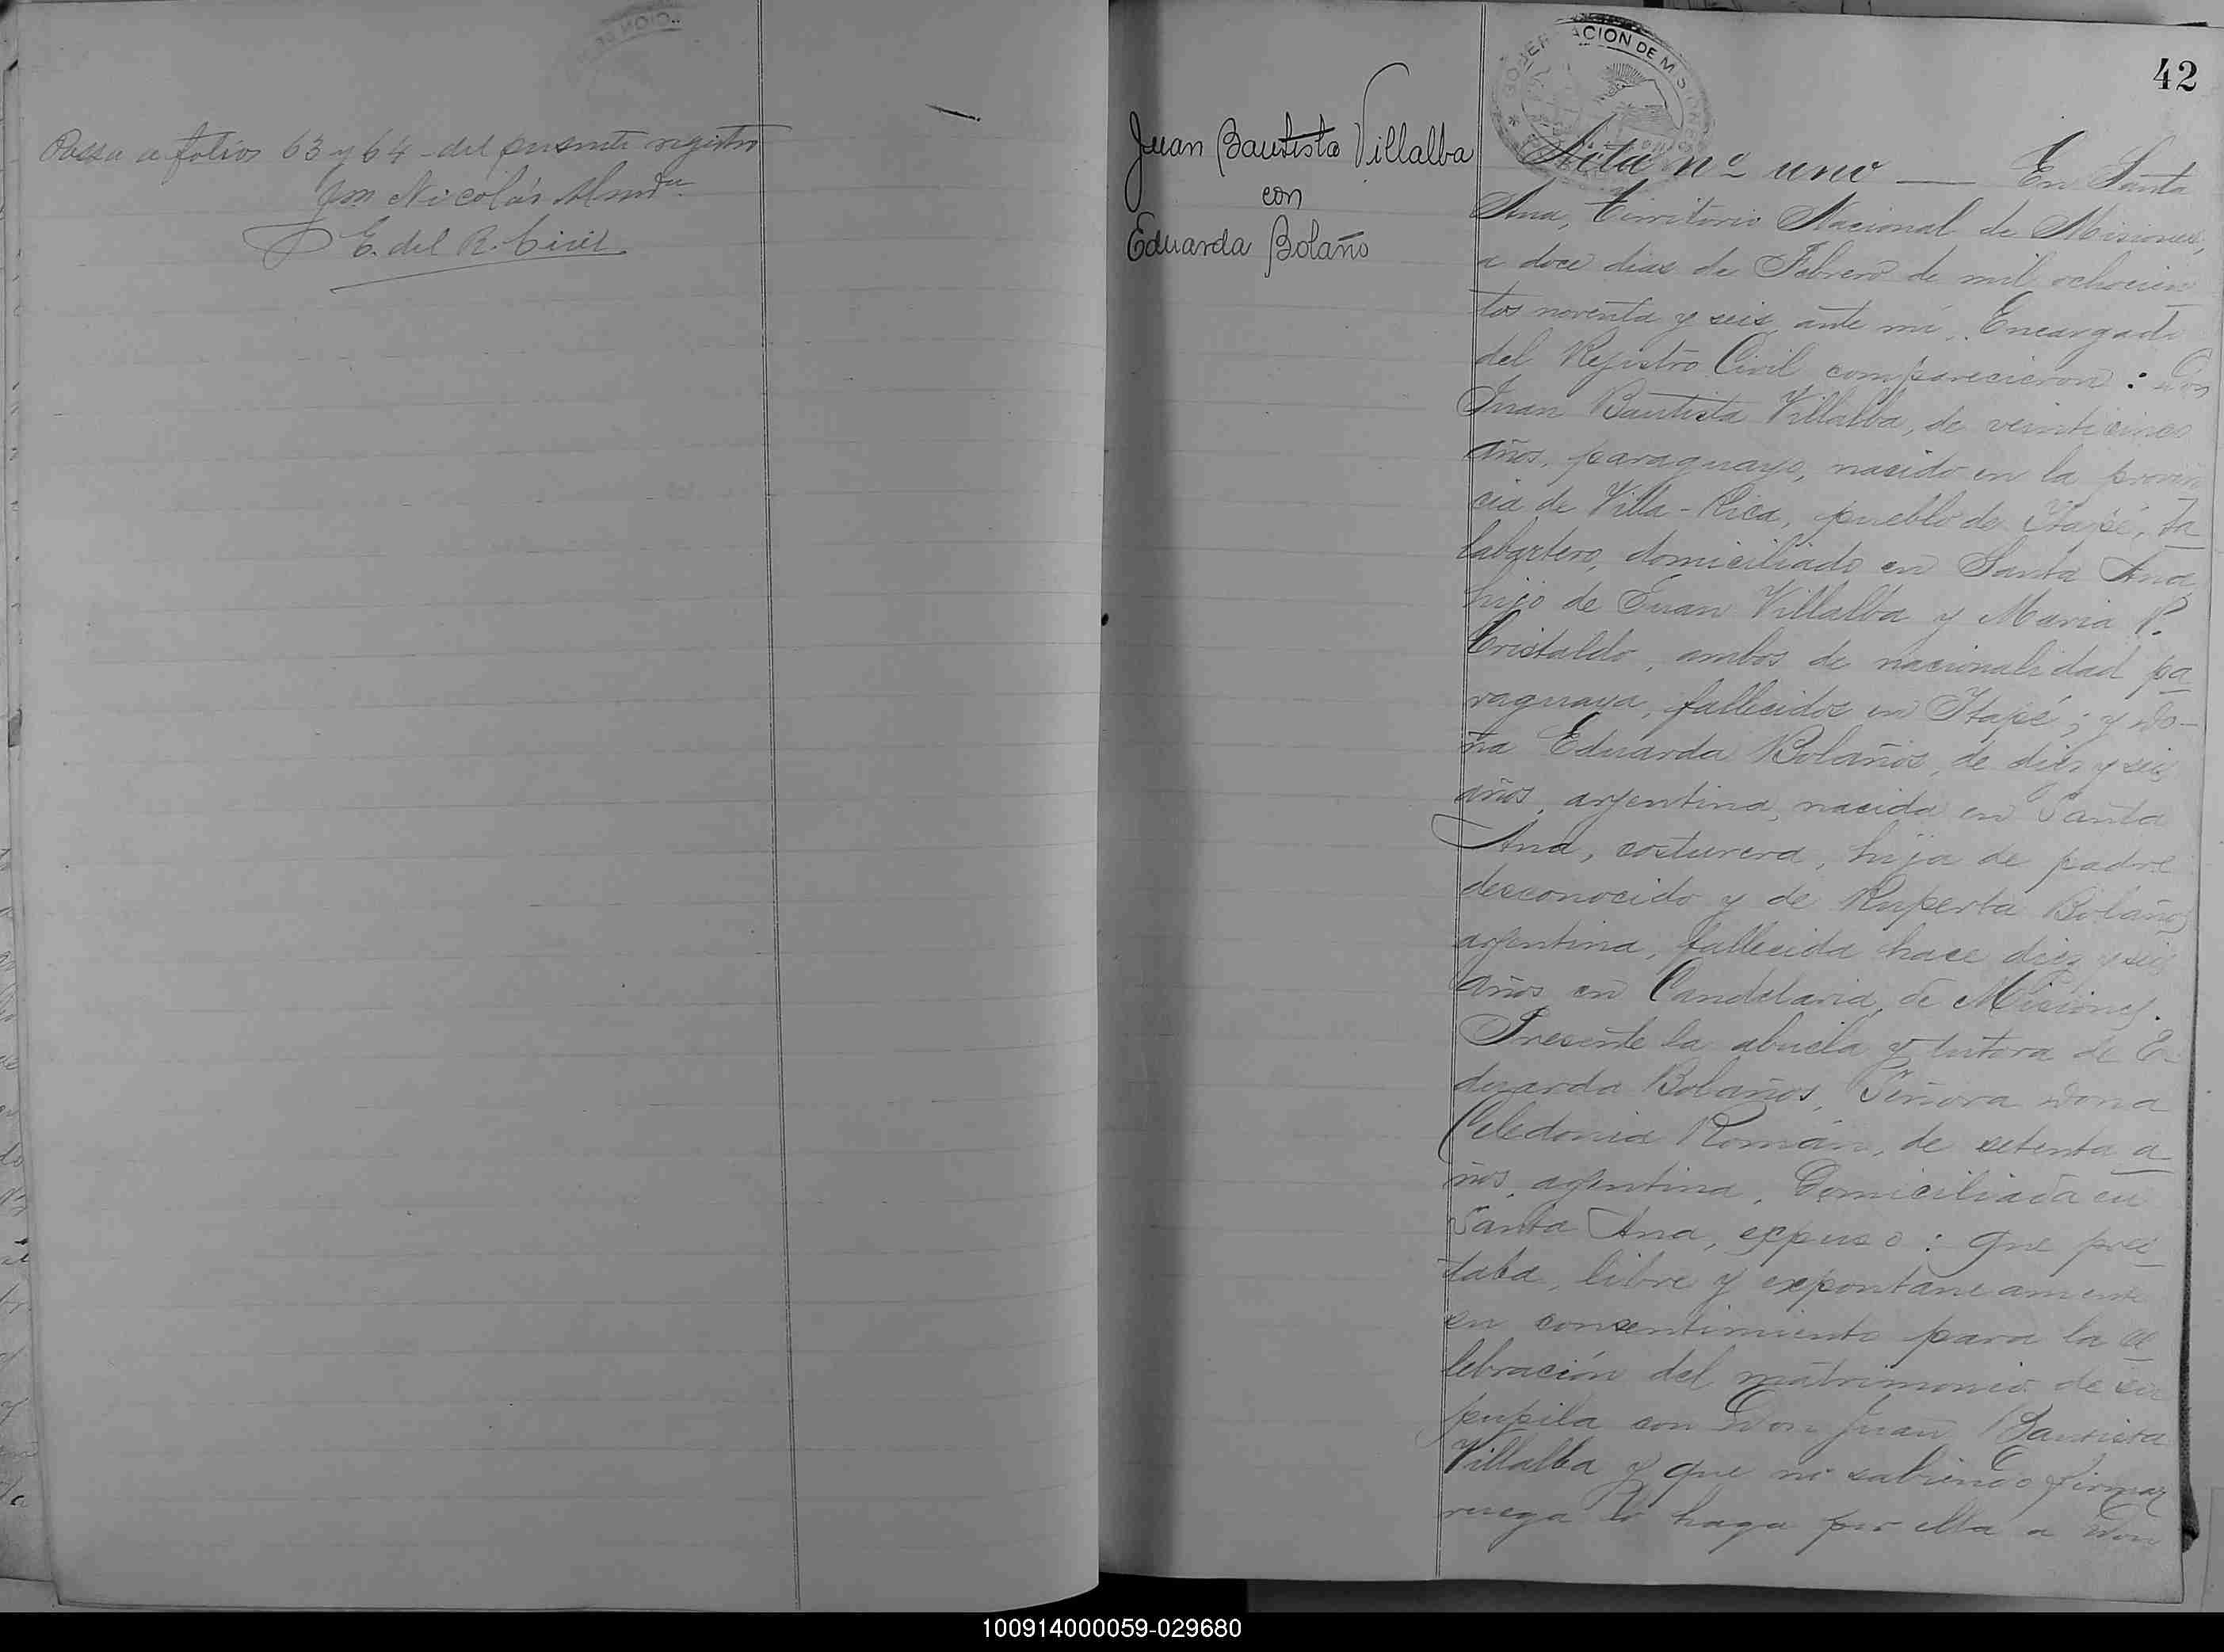 Passa a folios 63 y 64 - del presente registro
Nicolás
E. del R. Civil
42
GOBERNACION DE MISIONES
Juan Bautista Villalba
con
Eduarda Bolaño
Acta nº uno — En Santa
Ana, Territorio Nacional de Misiones,
a doce dias de Febrero de mil ochocien
tos noventa y seis, ante mí, Encargado
del Rejistro Civil comparecieron: Don
Juan Bautista Villalba, de veinticinco
años, paraguayo, nacido en la provin
cia de Villa-Rica, pueblo de Itapé, ta
labartero, domiciliado en Santa Ana,
hijo de Juan Villalba y Maria P.
Cristaldo, ambos de nacionalidad pa
raguaya, fallecidos en Itapé; y Do-
ña Eduarda Bolaños, de diez y seis
años, arjentina, nacida en Santa
Ana, costurera, hija de padre
desconocido y de Ruperta Bolaños
arjentina, fallecida hace diez y seis
años en Candelaria, de Misiones.
Presente la abuela y tutora de E
duarda Bolaños, Señora Dona
Celedonia Román, de setenta a
ños, arjentina, domiciliada en
Santa Ana, expuso: que pres
taba, libre y expontaneamente
su consentimiento para la ce
lebración del matrimonio de su
pupila con Don Juan Bautista
Villalba y que no sabiendo firmar
ruega lo haga por ella a Don
100914000059-029680